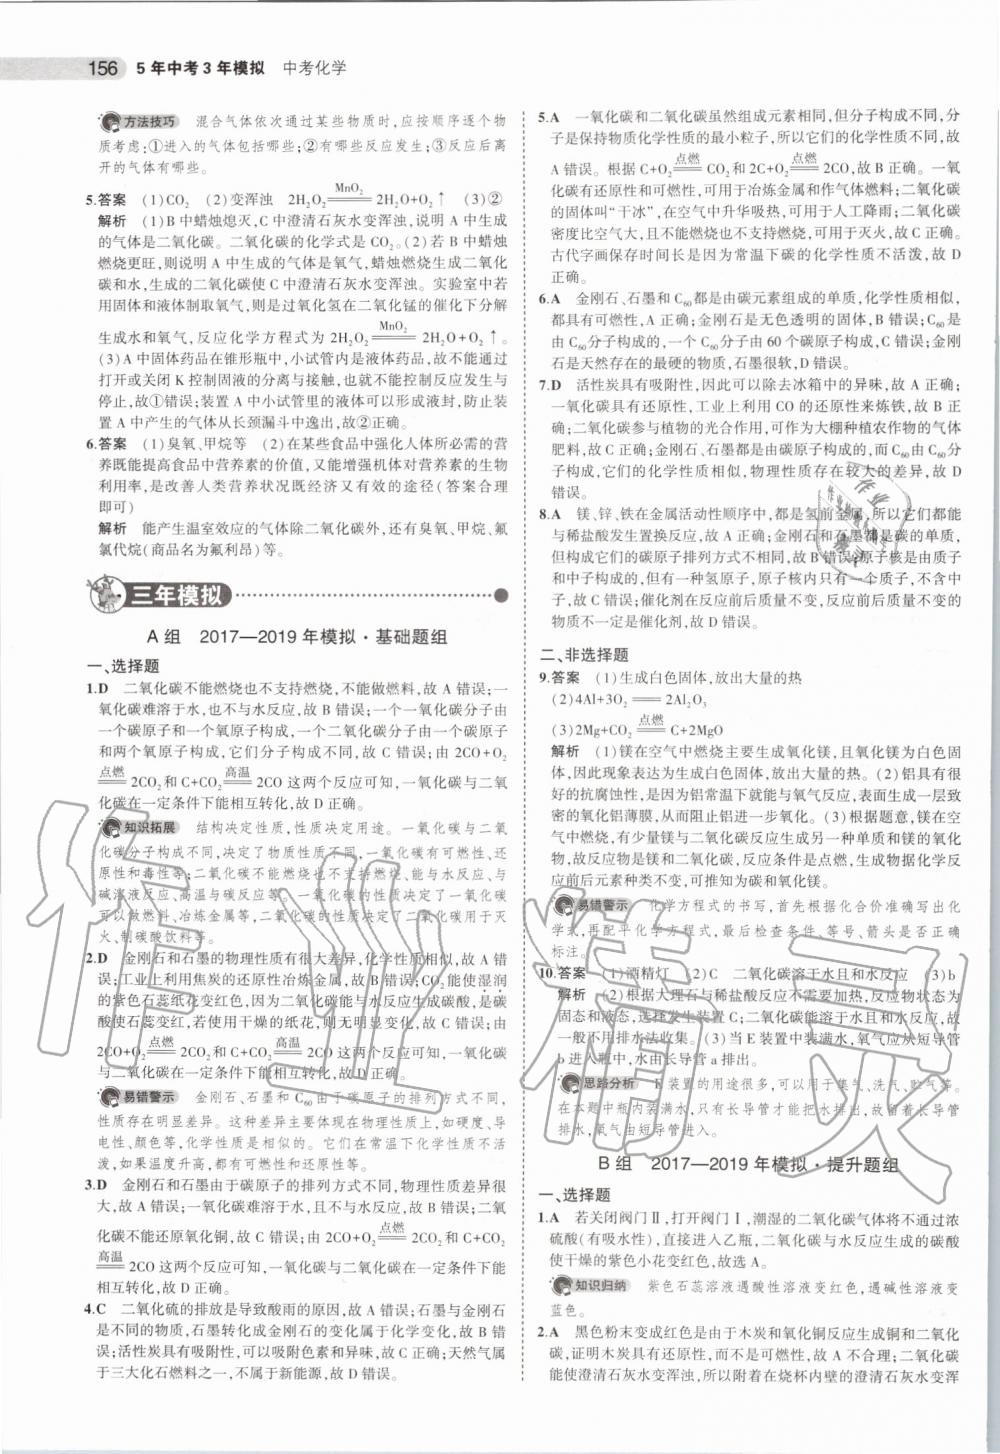 156 5年中考3年模拟 中考化学
方法技巧 混合气体依次通过某些物质时,应按顺序逐个物
质考虑:①进入的气体包括哪些;②有哪些反应发生;③反应后离
开的气体有哪些。
5.答案 (1)CO₂ (2)变浑浊 2H₂O₂ =MnO₂= 2H₂O+O₂↑ (3)②
解析 (1)B中蜡烛熄灭,C中澄清石灰水变浑浊,说明A中生成
的气体是二氧化碳。二氧化碳的化学式是CO₂。(2)若B中蜡烛
燃烧更旺,则说明A中生成的气体是氧气,蜡烛燃烧生成二氧化
碳和水,生成的二氧化碳使C中澄清石灰水变浑浊。实验室中若
用固体和液体制取氧气,则是过氧化氢在二氧化锰的催化下分解
生成水和氧气,反应化学方程式为2H₂O₂ =MnO₂= 2H₂O+O₂↑。
(3)A中固体药品在锥形瓶中,小试管内是液体药品,故不能通过
打开或关闭K控制固液的分离与接触,也就不能控制反应发生与
停止,故①错误;装置A中小试管里的液体可以形成液封,防止装
置A中产生的气体从长颈漏斗中逸出,故②正确。
6.答案 (1)臭氧、甲烷等 (2)在某些食品中强化人体所必需的营
养既能提高食品中营养素的价值,又能增强机体对营养素的生物
利用率,是改善人类营养状况既经济又有效的途径(答案合理
即可)
解析 能产生温室效应的气体除二氧化碳外,还有臭氧、甲烷、氟
氯代烷(商品名为氟利昂)等。
三年模拟
A组 2017—2019年模拟·基础题组
一、选择题
1.D 二氧化碳不能燃烧也不支持燃烧,不能做燃料,故A错误;一
氧化碳难溶于水,也不与水反应,故B错误;一个一氧化碳分子由
一个碳原子和一个氧原子构成,一个二氧化碳分子由一个碳原子
和两个氧原子构成,它们分子构成不同,故C错误;由2CO+O₂
=点燃= 2CO₂和C+CO₂ =高温= 2CO这两个反应可知,一氧化碳与二氧
化碳在一定条件下能相互转化,故D正确。
知识拓展 结构决定性质,性质决定用途。一氧化碳与二氧
化碳分子构成不同,决定了物质性质不同,一氧化碳有可燃性、还
原性和毒性等;二氧化碳不能燃烧也不支持燃烧、能与水反应、与
碱溶液反应、高温与碳反应等。一氧化碳的性质决定了一氧化碳
可以做燃料、冶炼金属等,二氧化碳的性质决定了二氧化碳用于灭
火、制碳酸饮料等。
2.D 金刚石和石墨的物理性质有很大差异,化学性质相似,故A错
误;工业上利用焦炭的还原性冶炼金属,故B错误;CO₂能使湿润
的紫色石蕊纸花变红色,因为二氧化碳能与水反应生成碳酸,是碳
酸使石蕊变红,若使用干燥的纸花,则无明显变化,故C错误;由
2CO+O₂ =点燃= 2CO₂和C+CO₂ =高温= 2CO这两个反应可知,一氧化碳
与二氧化碳在一定条件下能相互转化,故D正确。
易错警示 金刚石、石墨和C₆₀由于碳原子的排列方式不同,
性质存在明显差异。这种差异主要体现在物理性质上,如硬度、导
电性、颜色等,化学性质是相似的。它们在常温下化学性质不活
泼,如果温度升高,都有可燃性和还原性等。
3.D 金刚石和石墨由于碳原子的排列方式不同,物理性质差异很
大,故A错误;一氧化碳难溶于水,且不与水反应,故B错误;二氧
化碳不能还原氧化铜,故C错误;由2CO+O₂ =点燃= 2CO₂和C+CO₂
=高温= 2CO这两个反应可知,一氧化碳与二氧化碳在一定条件下能
相互转化,故D正确。
4.C 二氧化硫的排放是导致酸雨的原因,故A错误;石墨与金刚石
是不同的物质,石墨转化成金刚石的变化属于化学变化,故B错
误;活性炭具有吸附性,可以吸附色素和异味,故C正确;天然气属
于三大化石燃料之一,不属于新能源,故D错误。
5.A 一氧化碳和二氧化碳虽然组成元素相同,但分子构成不同,分
子是保持物质化学性质的最小粒子,所以它们的化学性质不同,故
A错误。根据C+O₂ =点燃= CO₂和2C+O₂ =点燃= 2CO,故B正确。一氧
化碳有还原性和可燃性,可用于冶炼金属和作气体燃料;二氧化碳
的固体叫“干冰”,在空气中升华吸热,可用于人工降雨;二氧化碳
密度比空气大,且不能燃烧也不支持燃烧,可用于灭火,故C正确。
古代字画保存时间长是因为在常温下碳的化学性质不活泼,故D
正确。
6.A 金刚石、石墨和C₆₀都是由碳元素组成的单质,化学性质相似,
都具有可燃性,A正确;金刚石是无色透明的固体,B错误;C₆₀是
由C₆₀分子构成的,一个C₆₀分子由60个碳原子构成,C错误;金刚
石是天然存在的最硬的物质,石墨很软,D错误。
7.D 活性炭具有吸附性,因此可以除去冰箱中的异味,故A正确;
一氧化碳具有还原性,工业上利用CO的还原性来炼铁,故B正
确;二氧化碳参与植物的光合作用,可作为大棚种植农作物的气体
肥料,故C正确;金刚石、石墨都是由碳原子构成的,而C₆₀由C₆₀分
子构成,它们的化学性质相似,物理性质存在较大的差异,故D
错误。
8.A 镁、锌、铁在金属活动性顺序中,都是氢前金属,所以它们都能
与稀盐酸发生置换反应,故A正确;金刚石和石墨都是碳的单质,
但构成它们的碳原子排列方式不相同,故B错误;原子核是由质子
和中子构成的,但有一种氢原子,原子核内只有一个质子,不含中
子,故C错误;催化剂在反应前后质量不变,反应前后质量不变的
物质不一定是催化剂,故D错误。
二、非选择题
9.答案 (1)生成白色固体,放出大量的热
(2)4Al+3O₂ == 2Al₂O₃
(3)2Mg+CO₂ =点燃= C+2MgO
解析 (1)镁在空气中燃烧主要生成氧化镁,且氧化镁为白色固
体,因此现象表达为生成白色固体,放出大量的热。(2)铝具有很
好的抗腐蚀性,是因为铝常温下就能与氧气反应,表面生成一层致
密的氧化铝薄膜,从而阻止铝进一步氧化。(3)根据题意,镁在空
气中燃烧,有少量镁与二氧化碳反应生成另一种单质和镁的氧化
物,故反应物是镁和二氧化碳,反应条件是点燃,生成物据化学反
应前后元素种类不变,可推知为碳和氧化镁。
易错警示 化学方程式的书写,首先根据化合价准确写出化
学式,再配平化学方程式,最后检查条件、等号、箭头是否正确
标注。
10.答案 (1)酒精灯 (2)C 二氧化碳溶于水且和水反应 (3)b
解析 (2)根据大理石与稀盐酸反应不需要加热,反应物状态为
固态和液态,选择发生装置C;二氧化碳能溶于水且和水反应,故
一般不用排水法收集。(3)当E装置中装满水,氧气应从短导管
b进入瓶中,水由长导管a排出。
思路分析 E装置的用途很多,可以用于集气、洗气、贮气等。
在本题中瓶内装满水,只有长导管才能把水排出,故留着长导管
排水,氧气由短导管进入。
B组 2017—2019年模拟·提升题组
一、选择题
1.A 若关闭阀门Ⅱ,打开阀门Ⅰ,潮湿的二氧化碳气体将不通过浓
硫酸(有吸水性),直接进入乙瓶,二氧化碳与水反应生成的碳酸
使干燥的紫色小花变红色,故选A。
知识归纳 紫色石蕊溶液遇酸性溶液变红色,遇碱性溶液变
蓝色。
2.A 黑色粉末变成红色是由于木炭和氧化铜反应生成铜和二氧化
碳,证明木炭具有还原性,而不是可燃性,故A不合理;二氧化碳
能使澄清石灰水变浑浊,所以附着在烧杯内壁的澄清石灰水变浑
作业精灵